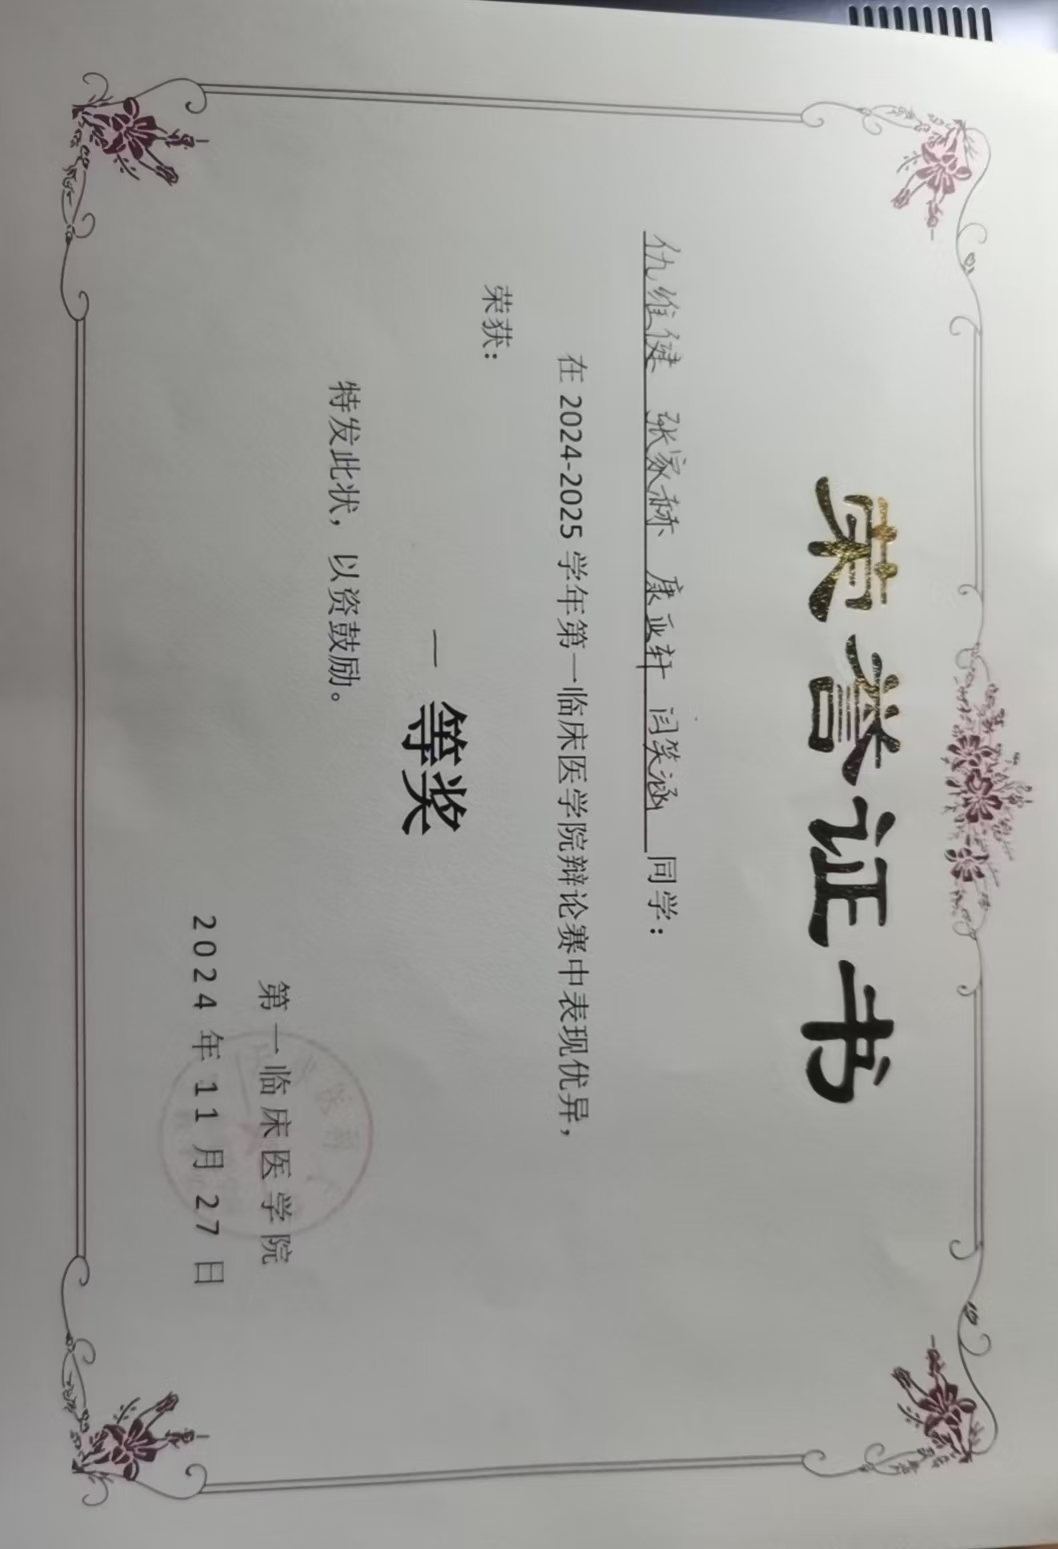 荣誉证书
仇维健 张家赫 康亚轩 闫笑涵 同学：
在2024-2025学年第一临床医学院辩论赛中表现优异，
荣获：
一等奖
特发此状，以资鼓励。
第一临床医学院
2024年11月27日